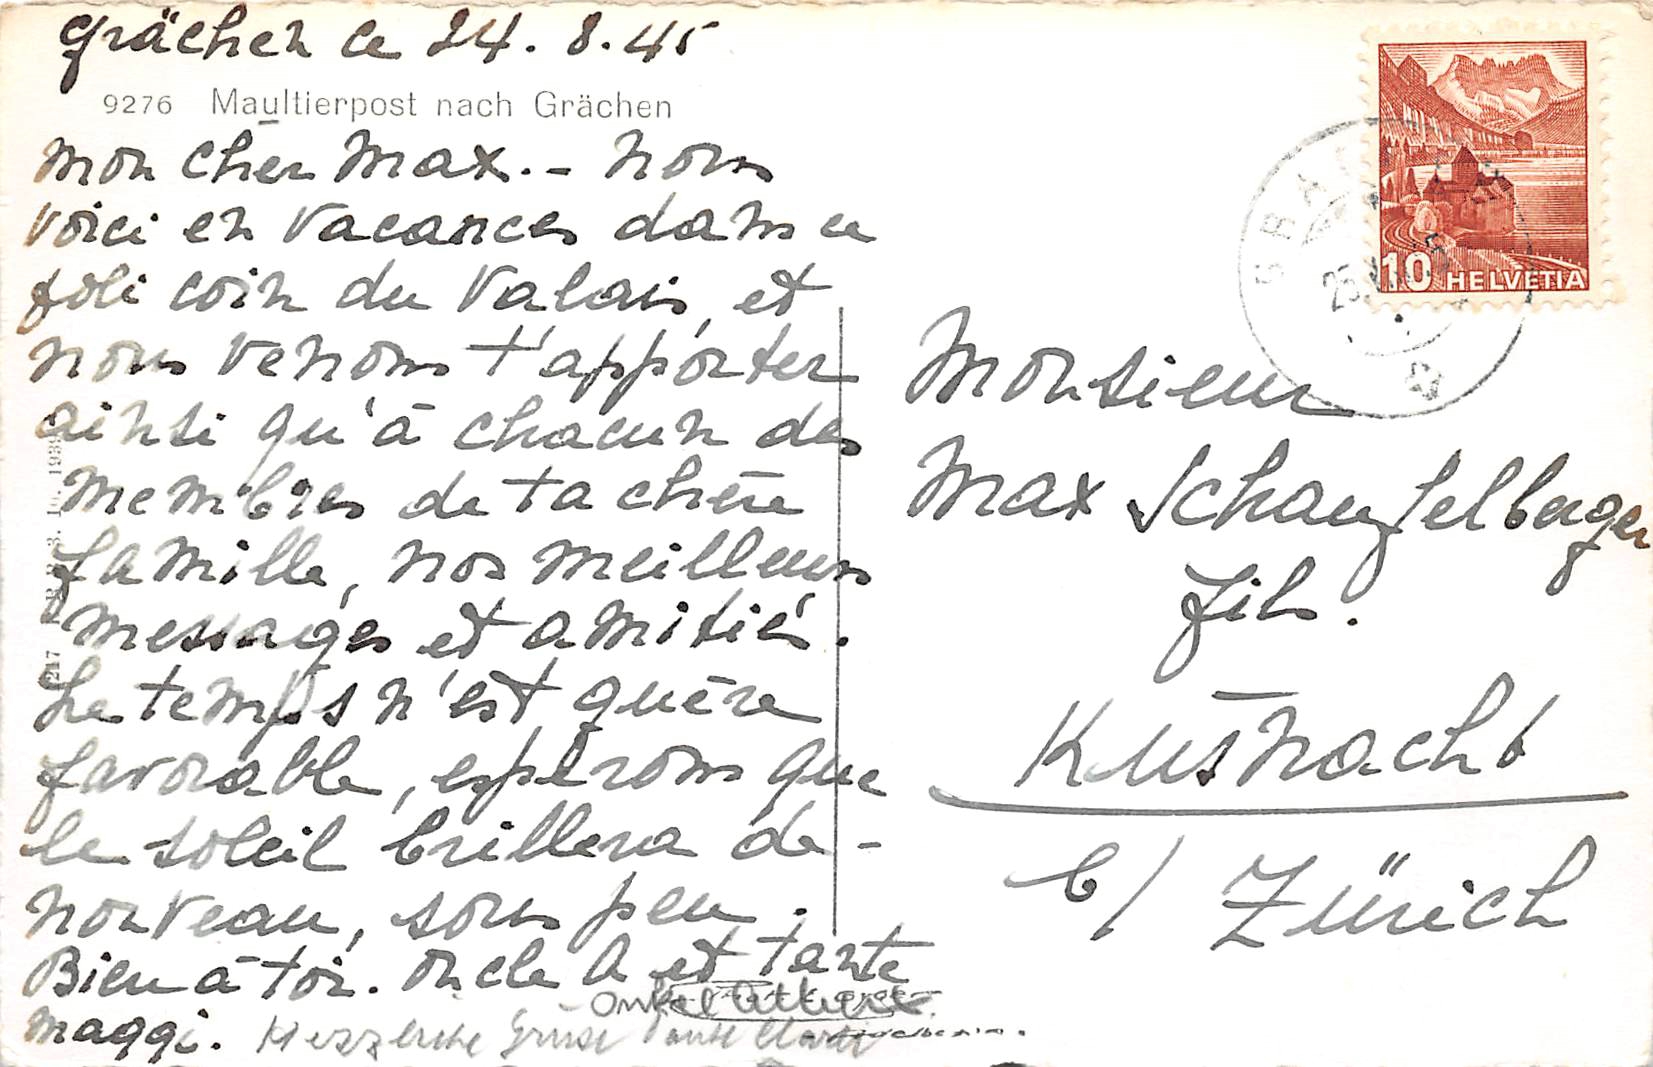 Grächen ce 24. 8. 45
9276 Maultierpost nach Grächen
Mon cher Max. - Nous
voici en vacances dans ce
joli coin du Valais, et
nous venons t'apporter
ainsi qu'à chacun des
membres de ta chère
famille, nos meilleurs
messages et amitiés.
Le temps n'est guère
favorable, espérons que
le soleil brillera de-
nouveau, sous peu.
Bien à toi. Oncle A et tante
Maggi. Herzliche Grüsse Tante
Onkel
10 HELVETIA
GRÄ
25
Monsieur
Max Schaufelberger
fils.
Küsnacht
b/ Zürich